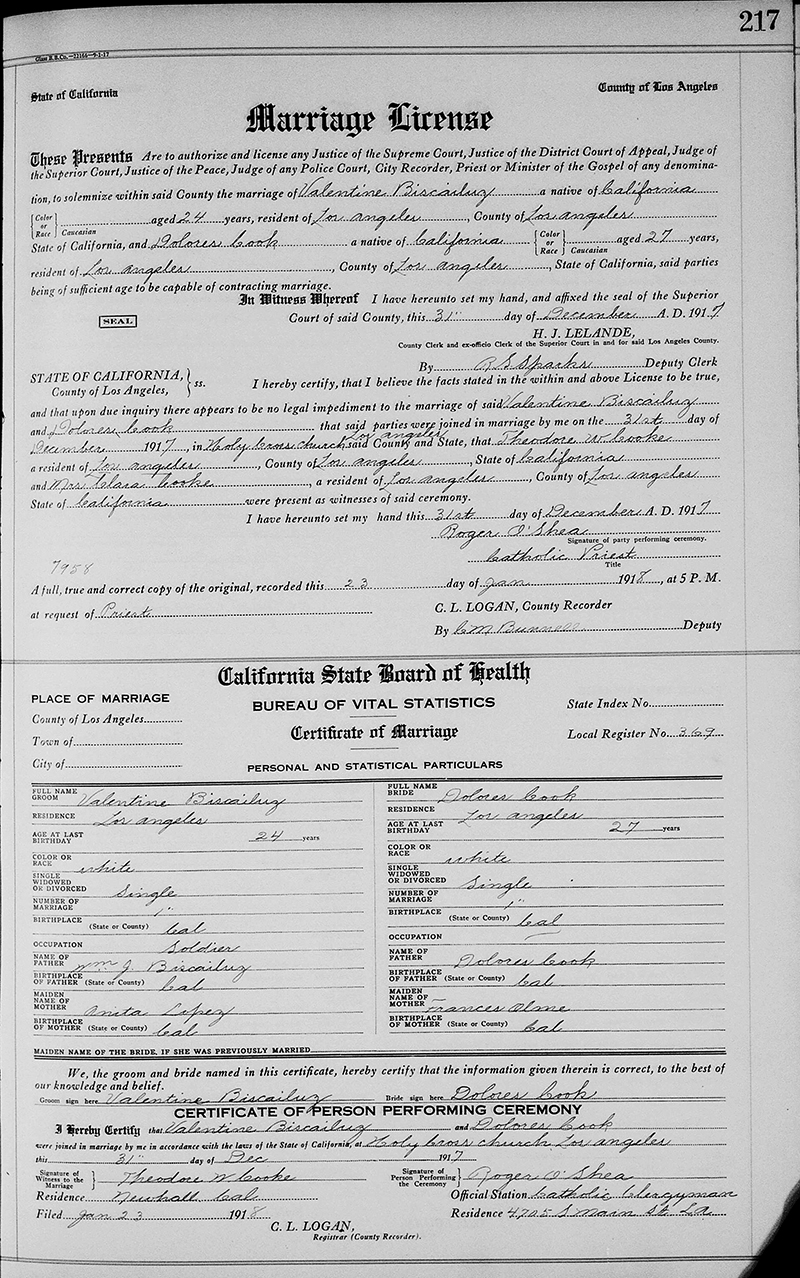 217
Glass B.B.Co.—22166—9-2-17
State of California County of Los Angeles
Marriage License
These Presents Are to authorize and license any Justice of the Supreme Court, Justice of the District Court of Appeal, Judge of
the Superior Court, Justice of the Peace, Judge of any Police Court, City Recorder, Priest or Minister of the Gospel of any denomina-
tion, to solemnize within said County the marriage of Valentine Biscailuz a native of California
{Color or Race} Caucasian aged 24 years, resident of Los Angeles, County of Los Angeles
State of California, and Dolores Cook a native of California {Color or Race} Caucasian aged 27 years,
resident of Los Angeles, County of Los Angeles, State of California, said parties
being of sufficient age to be capable of contracting marriage.
In Witness Whereof I have hereunto set my hand, and affixed the seal of the Superior
SEAL Court of said County, this 31" day of December A. D. 1917
H. J. LELANDE,
County Clerk and ex-officio Clerk of the Superior Court in and for said Los Angeles County.
By R S Sparks Deputy Clerk
STATE OF CALIFORNIA, County of Los Angeles, } ss. I hereby certify, that I believe the facts stated in the within and above License to be true,
and that upon due inquiry there appears to be no legal impediment to the marriage of said Valentine Biscailuz
and Dolores Cook that said parties were joined in marriage by me on the 31st day of
December 1917, in Holy Cross Church, Los Angeles said County and State, that Theodore W Cooke
a resident of Los Angeles, County of Los Angeles, State of California
and Mrs Clara Cooke, a resident of Los Angeles, County of Los Angeles
State of California were present as witnesses of said ceremony.
I have hereunto set my hand this 31st day of December A. D. 1917
Roger O'Shea
Signature of party performing ceremony.
Catholic Priest
Title
7958
A full, true and correct copy of the original, recorded this 23 day of Jan 1918, at 5 P. M.
at request of Priest C. L. LOGAN, County Recorder
By C M Bunnell Deputy
California State Board of Health
PLACE OF MARRIAGE BUREAU OF VITAL STATISTICS State Index No.
County of Los Angeles
Certificate of Marriage Local Register No. 369
Town of
City of
PERSONAL AND STATISTICAL PARTICULARS
FULL NAME GROOM Valentine Biscailuz FULL NAME BRIDE Dolores Cook
RESIDENCE Los Angeles RESIDENCE Los Angeles
AGE AT LAST BIRTHDAY 24 years AGE AT LAST BIRTHDAY 27 years
COLOR OR RACE white COLOR OR RACE white
SINGLE WIDOWED OR DIVORCED Single SINGLE WIDOWED OR DIVORCED Single
NUMBER OF MARRIAGE 1" NUMBER OF MARRIAGE 1"
BIRTHPLACE (State or County) Cal BIRTHPLACE (State or County) Cal
OCCUPATION Soldier OCCUPATION
NAME OF FATHER Wm J. Biscailuz NAME OF FATHER Dolores Cook
BIRTHPLACE OF FATHER (State or County) Cal BIRTHPLACE OF FATHER (State or County) Cal
MAIDEN NAME OF MOTHER Anita Lopez MAIDEN NAME OF MOTHER Frances Olme
BIRTHPLACE OF MOTHER (State or County) Cal BIRTHPLACE OF MOTHER (State or County) Cal
MAIDEN NAME OF THE BRIDE, IF SHE WAS PREVIOUSLY MARRIED
We, the groom and bride named in this certificate, hereby certify that the information given therein is correct, to the best of
our knowledge and belief.
Groom sign here Valentine Biscailuz Bride sign here Dolores Cook
CERTIFICATE OF PERSON PERFORMING CEREMONY
I Hereby Certify that Valentine Biscailuz and Dolores Cook
were joined in marriage by me in accordance with the laws of the State of California, at Holy Cross church Los Angeles
this 31" day of Dec 1917
Signature of Witness to the Marriage } Theodore W Cooke Signature of Person Performing the Ceremony } Roger O'Shea
Residence Newhall Cal Official Station Catholic Clergyman
Filed Jan 23 1918 Residence 4705 S Main St. LA
C. L. LOGAN,
Registrar (County Recorder).